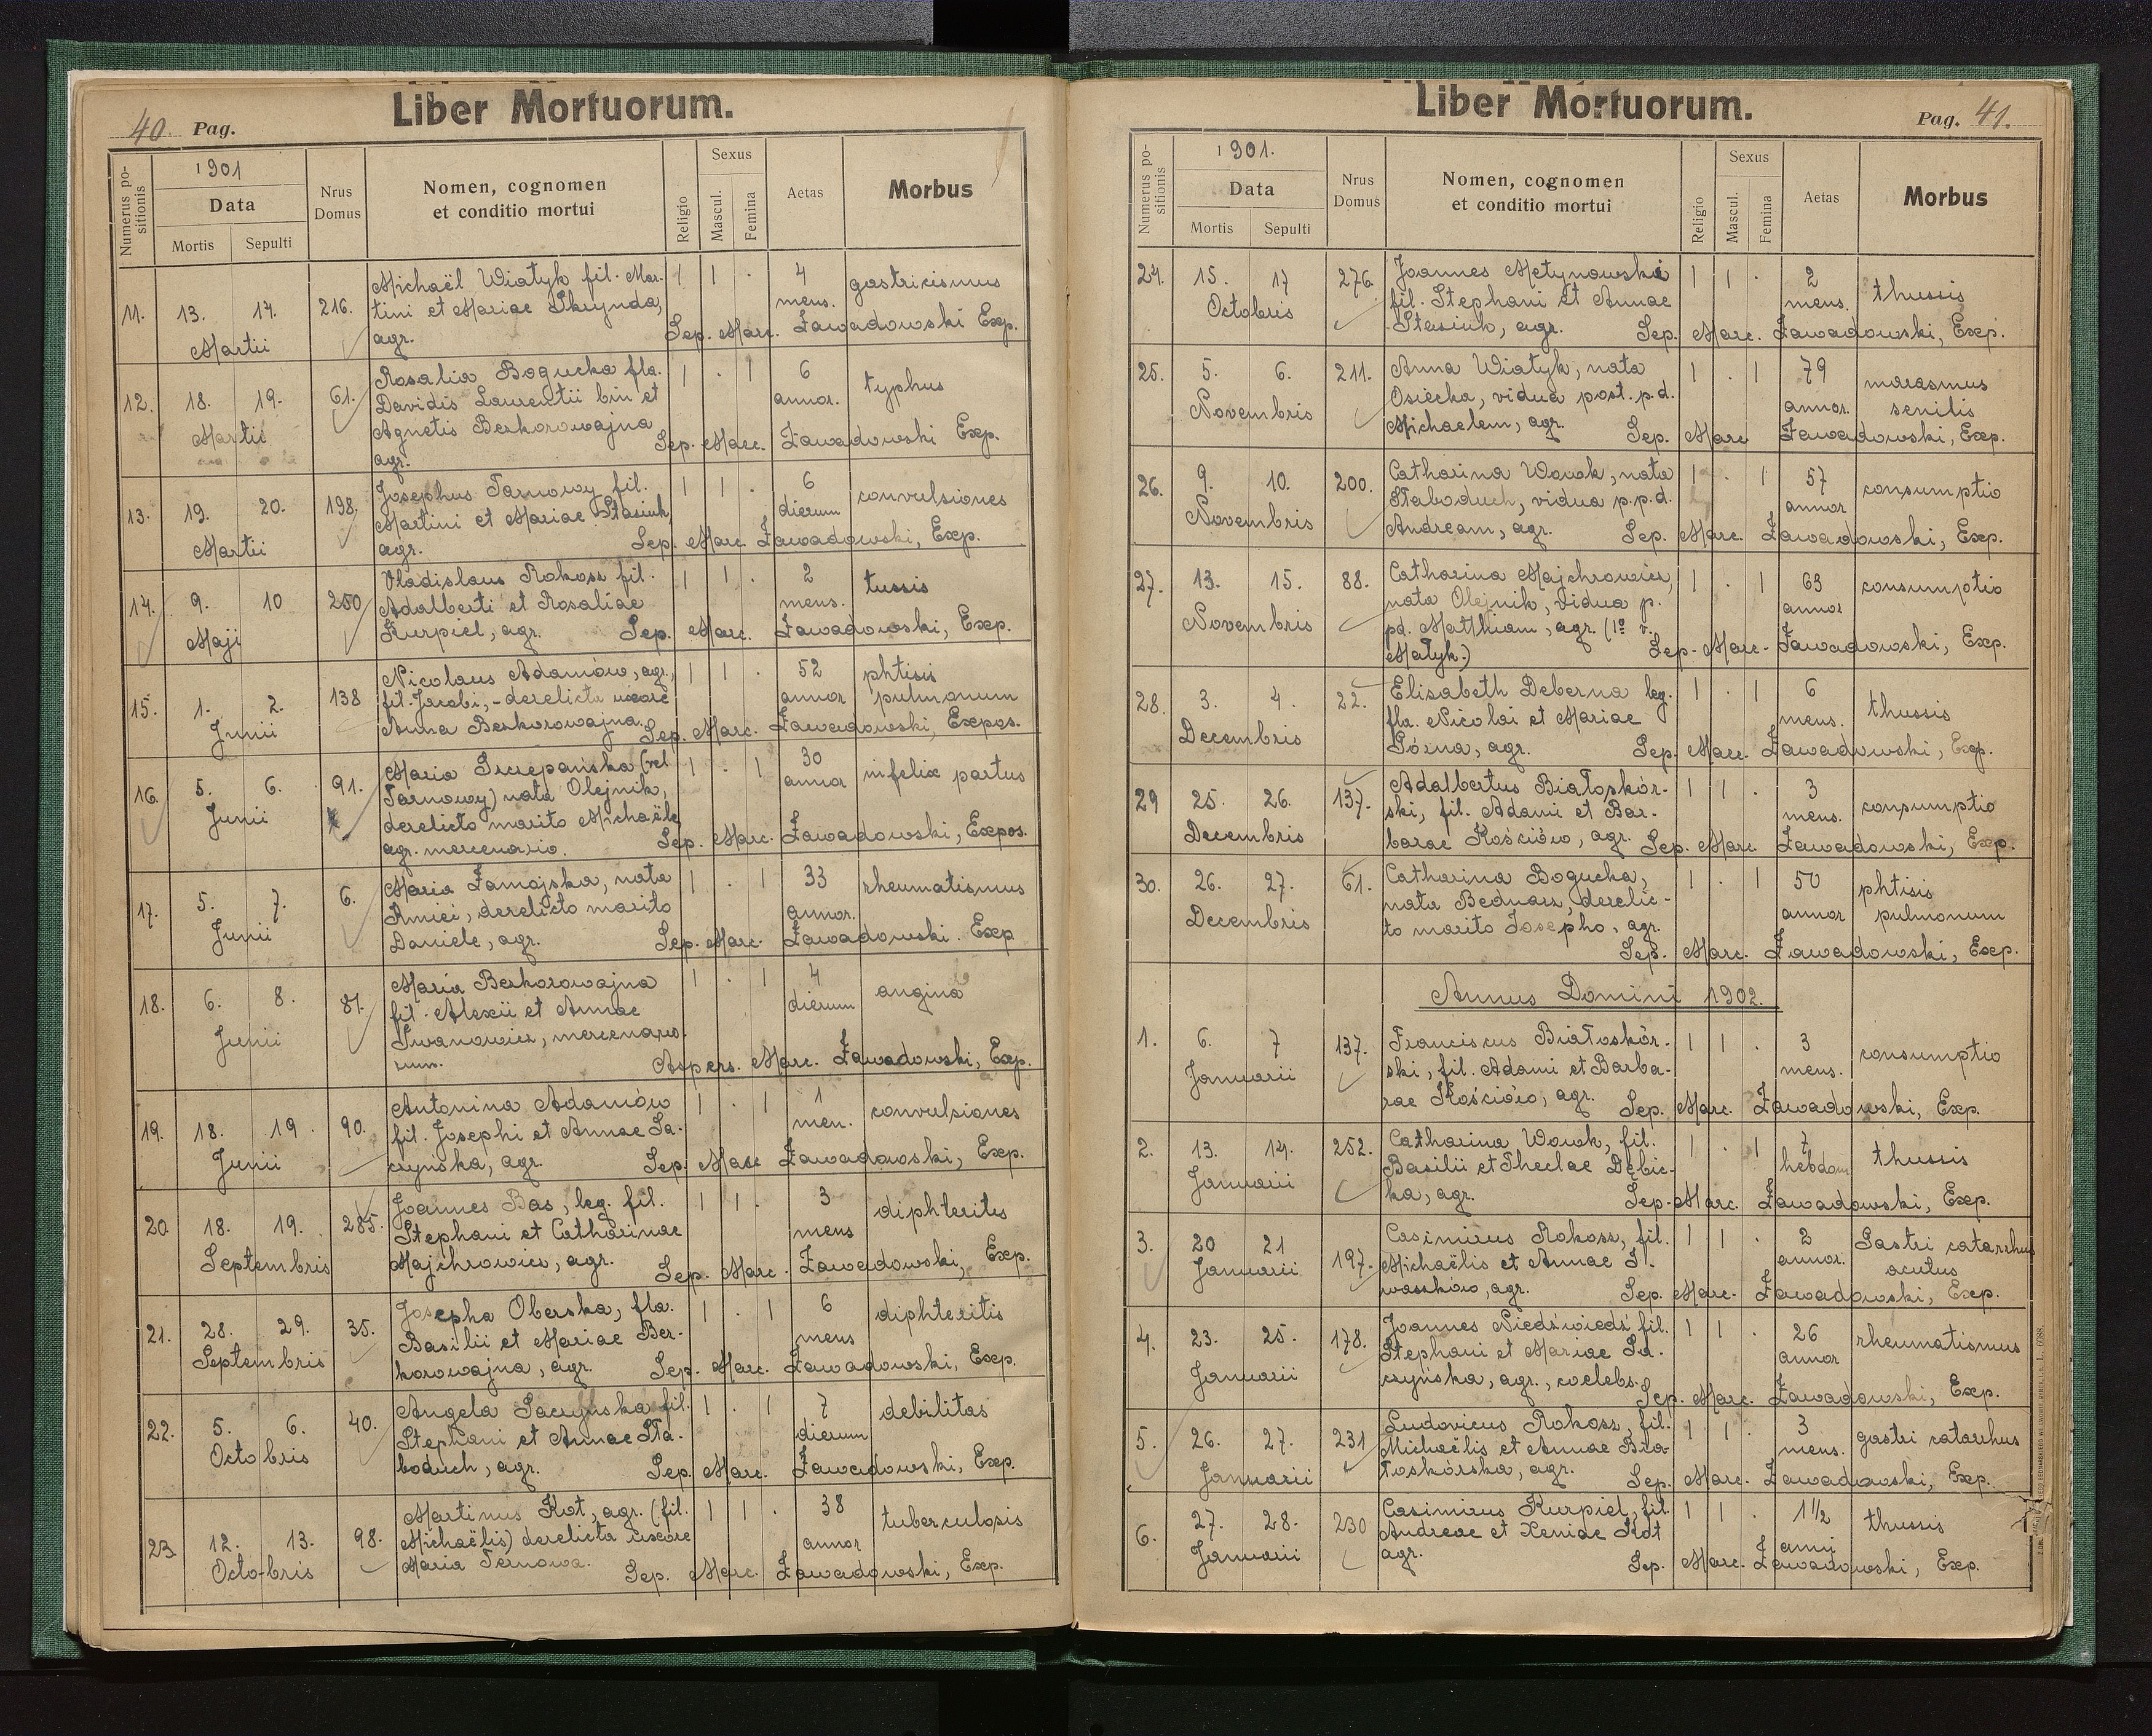 Liber Mortuorum.
40. Pag.
Numerus positionis
1901
Data
Mortis Sepulti
Nrus Domus
Nomen, cognomen
et conditio mortui
Religio
Sexus
Mascul. Femina
Aetas
Morbus
11. 13. 14. 216. Michaël Wiatyk fil. Mar- 1 1 . 4 gastricismus
Martii tini et Mariae Skrynda, mens.
agr. Sep. Marc. Zawadowski Exp.
12. 18. 19. 61. Rosalia Bogucka fla. 1 . 1 6 typhus
Martii Davidis Laurentii bin et annor.
Agnetis Beskorowajna Sep. Marc. Zawadowski Exp.
agr.
13. 19. 20. 198. Josephus Tarnowy fil. 1 1 . 6 convulsiones
Martii Martini et Mariae Stasiuk, dierum
agr. Sep. Marc. Zawadowski, Exp.
14. 9. 10 250 Vladislaus Rokosz fil. 1 1 . 2 tussis
Maji Adalberti et Rosaliae mens.
Kurpiel, agr. Sep. Marc. Zawadowski, Exp.
15. 1. 2. 138 Nicolaus Adamów, agr., 1 1 . 52 phtisis
Junii fil. Jacobi, - derelicta uxore annor pulmonum
Anna Beskorowajna. Sep. Marc. Zawadowski, Expos.
16. 5. 6. 91. Maria Szczepańska (vel 1 . 1 30 infelix partus
Junii Tarnowy) nata Olejnik, annor
derelicto marito Michaële
agr. mercenario. Sep. Marc. Zawadowski, Expos.
17. 5. 7. 6. Maria Zamojska, nata 1 . 1 33 rheumatismus
Junii Kmieć, derelicto marito annor.
Daniele, agr. Sep. Marc. Zawadowski. Exp
18. 6. 8. 87. Maria Beskorowajna 1 . 1 4 angina
Junii fil. Alexii et Annae dierum
Iwanowicz, mercenario-
rum. Aspers. Marc. Zawadowski, Exp.
19. 18. 19. 90. Antonina Adamów 1 . 1 1 convulsiones
Junii fil. Josephi et Annae Sa- men.
czyńska, agr. Sep. Marc Zawadowski, Exp.
20. 18. 19. 285. Joannes Bas, leg. fil. 1 1 . 3 diphteritis
Septembris Stephani et Catharinae mens
Majchrowicz, agr. Sep. Marc. Zawadowski, Exp.
21. 28. 29. 35. Josepha Oberska, fla. 1 . 1 6 diphteritis
Septembris Basilii et Mariae Bes- mens
korowajna, agr. Sep. Marc. Zawadowski, Exp.
22. 5. 6. 40. Angela Saczyńska fil. 1 . 1 7 debilitas
Octobris Stephani et Annae Sta- dierum
boduch, agr. Sep. Marc. Zawadowski, Exp.
23. 12. 13. 98. Martinus Kot, agr. (fil. 1 1 . 38 tuberculosis
Octobris Michaëlis) derelicta uxore annor
Maria Ternowa. Sep. Marc. Zawadowski, Exp.
Liber Mortuorum.
Pag. 41.
Numerus positionis
1901.
Data
Mortis Sepulti
Nrus Domus
Nomen, cognomen
et conditio mortui
Religio
Sexus
Mascul. Femina
Aetas
Morbus
24. 15. 17 276. Joannes Metynowski 1 1 . 2 thussis
Octobris fil. Stephani et Annae mens.
Stasiuk, agr. Sep. Marc. Zawadowski, Exp.
25. 5. 6. 211. Anna Wiatyk, nata 1 . 1 79 marasmus
Novembris Osiecka, vidua post. p.d. annor. senilis
Michaelem, agr. Sep. Marc Zawadowski, Exp.
26. 9. 10. 200. Catharina Wowk, nata 1 . 1 57 consumptio
Novembris Staboduch, vidua p.p.d. annor
Andream, agr. Sep. Marc. Zawadowski, Exp.
27. 13. 15. 88. Catharina Majchrowicz, 1 . 1 63 consumptio
Novembris nata Olejnik, vidua p. annor
pd. Matthiam, agr. (1º v.
Matyk.) Sep. Marc. Zawadowski, Exp.
28. 3. 4. 22. Elisabeth Deberna leg. 1 . 1 6 thussis
Decembris fla. Nicolai et Mariae mens.
Górna, agr. Sep. Marc. Zawadowski, Exp.
29 25. 26. 137. Adalbertus Białoskór- 1 1 . 3 consumptio
Decembris ski, fil. Adami et Bar- mens.
barae Kościów, agr. Sep. Marc. Zawadowski, Exp.
30. 26. 27. 61. Catharina Bogucka, 1 . 1 50 phtisis
Decembris nata Bednarz, derelic- annor pulmonum
to marito Josepho, agr.
Sep. Marc. Zawadowski, Exp.
Annus Domini 1902.
1. 6. 7 137. Franciscus Białoskór- 1 1 . 3 consumptio
Januarii ski, fil. Adami et Barba- mens.
rae Kościów, agr. Sep. Marc. Zawadowski, Exp.
2. 13. 14. 252. Catharina Wowk, fil. 1 . 1 7 thussis
Januarii Basilii et Theclae Dębic- hebdom
ka, agr. Sep. Marc. Zawadowski, Exp.
3. 20 21 197. Casimirus Rokosz, fil. 1 1 . 2 Gastri catarrhus
Januarii Michaëlis et Annae I- annor. acutus
waszków, agr. Sep. Marc. Zawadowski, Exp.
4. 23. 25. 178. Joannes Niedźwiedź fil. 1 1 . 26 rheumatismus
Januarii Stephani et Mariae Sa- annor
czyńska, agr., coelebs. Sep. Marc. Zawadowski, Exp.
5. 26. 27. 231 Ludovicus Rokosz, fil. 1 1 . 3 gastri catarrhus
Januarii Michaëlis et Annae Bia- mens.
łoskórska, agr. Sep. Marc. Zawadowski, Exp.
6. 27. 28. 230 Casimirus Kurpiel, fil 1 1 . 1½ thussis
Januarii Andreae et Xeniae Kot anni
agr. Sep. Marc. Zawadowski, Exp.